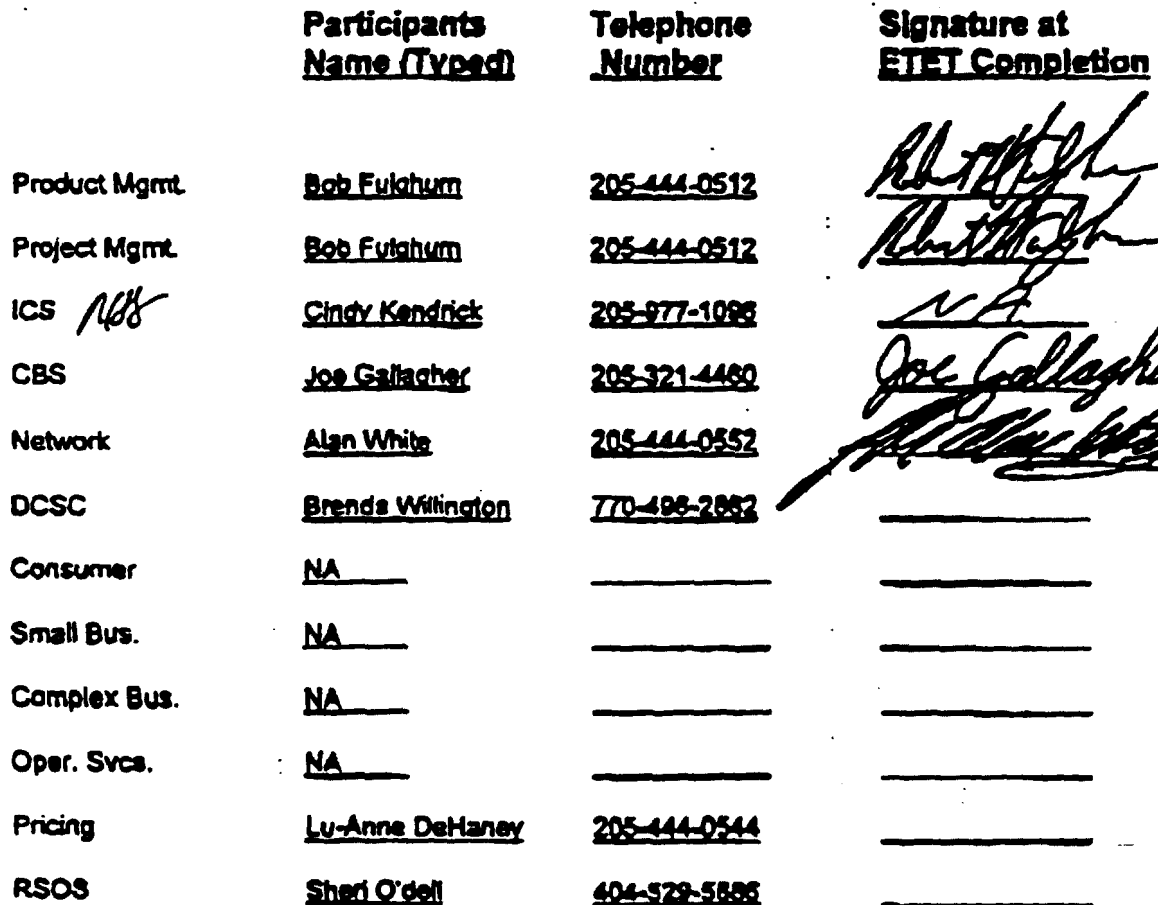 Participants Telephone Signature at
Name (Typed) Number ETET Completion
Product Mgmt. Bob Fulghum 205-444-0512
Project Mgmt. Bob Fulghum 205-444-0512
ICS Cindy Kendrick 205-977-1096 NA
CBS Joe Gallagher 205-321-4460 Joe Gallagher
Network Alan White 205-444-0552
DCSC Brenda Willington 770-496-2862
Consumer NA
Small Bus. NA
Complex Bus. NA
Oper. Svcs. NA
Pricing Lu-Anne DeHaney 205-444-0544
RSOS Sheri O'dell 404-529-5686